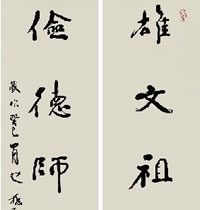 雄文祖
儉德師
歲次癸巳